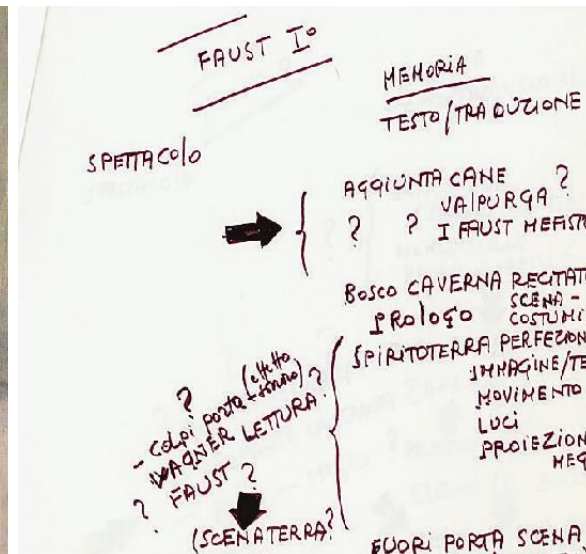 FAUST Iº
MEMORIA
TESTO/TRADUZIONE
SPETTACOLO
AGGIUNTA CANE
VALPURGA ?
? ? I FAUST MEFIST
BOSCO CAVERNA RECITAT
SCENA -
PROLOGO COSTUMI
SPIRITOTERRA PERFEZION
IMMAGINE/TE
MOVIMENTO
LUCI
PROIEZION
MEG
? (effetto
- COLPI PORTA - sonoro) ?
WAGNER LETTURA.
? FAUST ?
(SCENATERRA?
FUORI PORTA SCENA